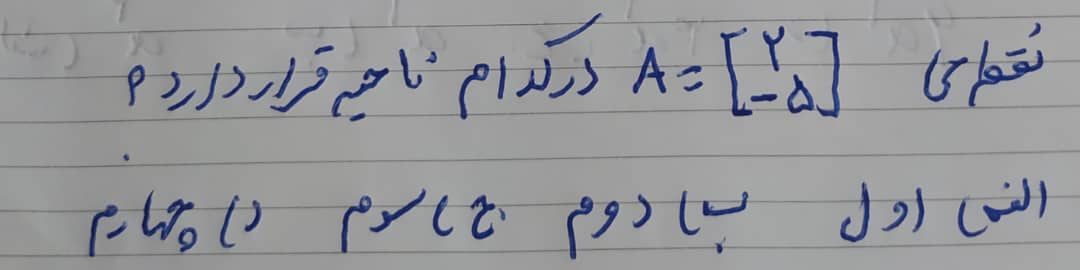 نقطه‌ی A = [۲ -۵] در کدام ناحیه قرار دارد ؟
الف) اول ب) دوم ج) سوم د) چهارم